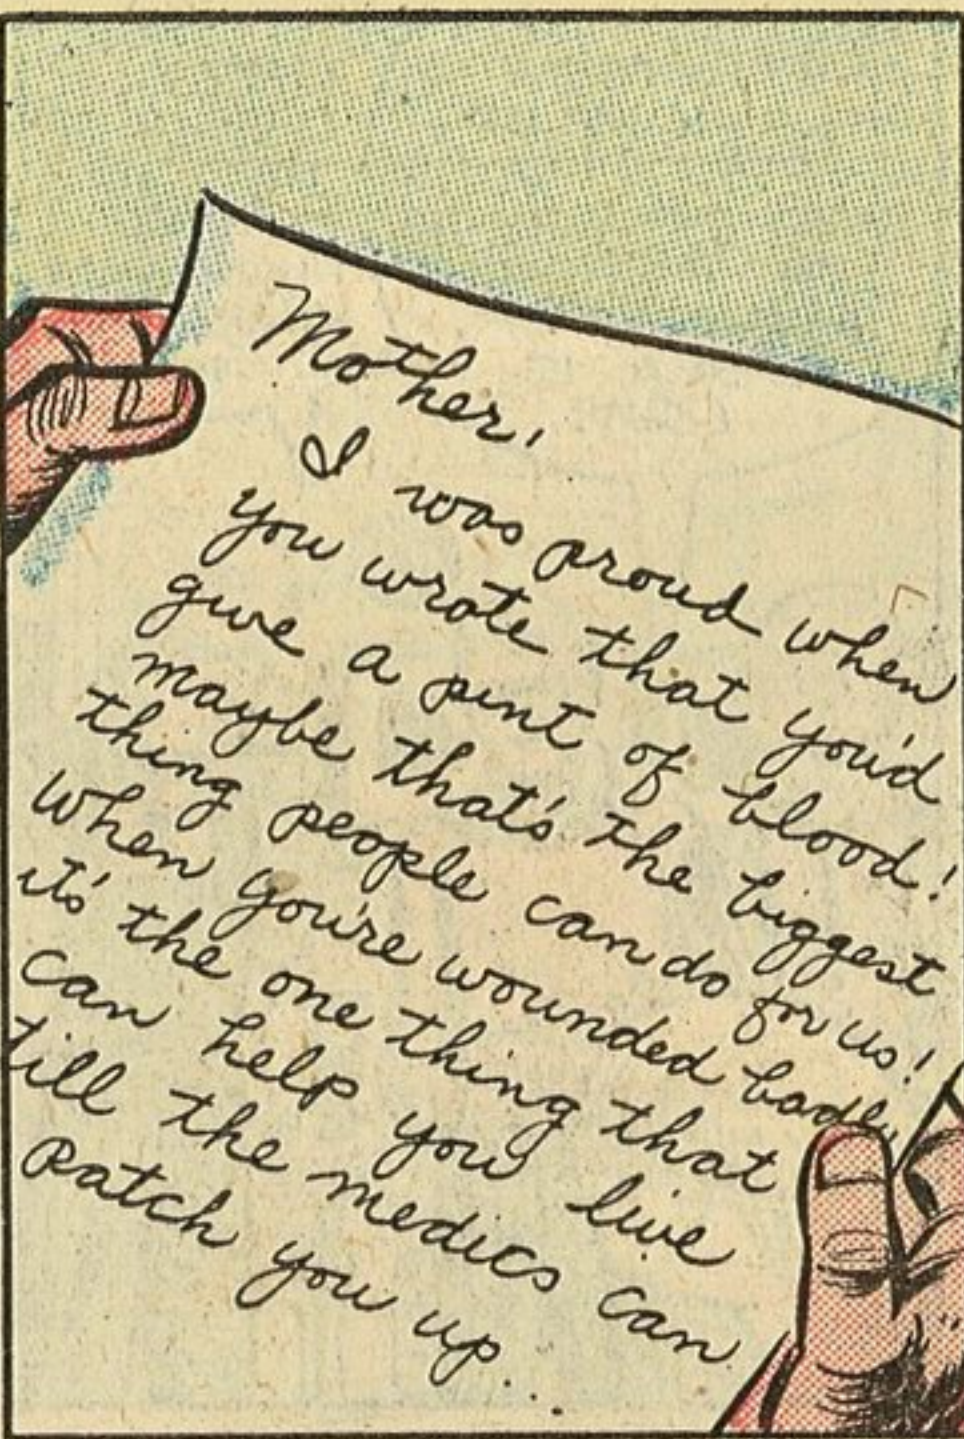 Mother,
I was proud when
you wrote that you'd
give a pint of blood!
maybe that's the biggest
thing people can do for us!
when you're wounded badly
it's the one thing that
can help you live
till the medics can
patch you up...